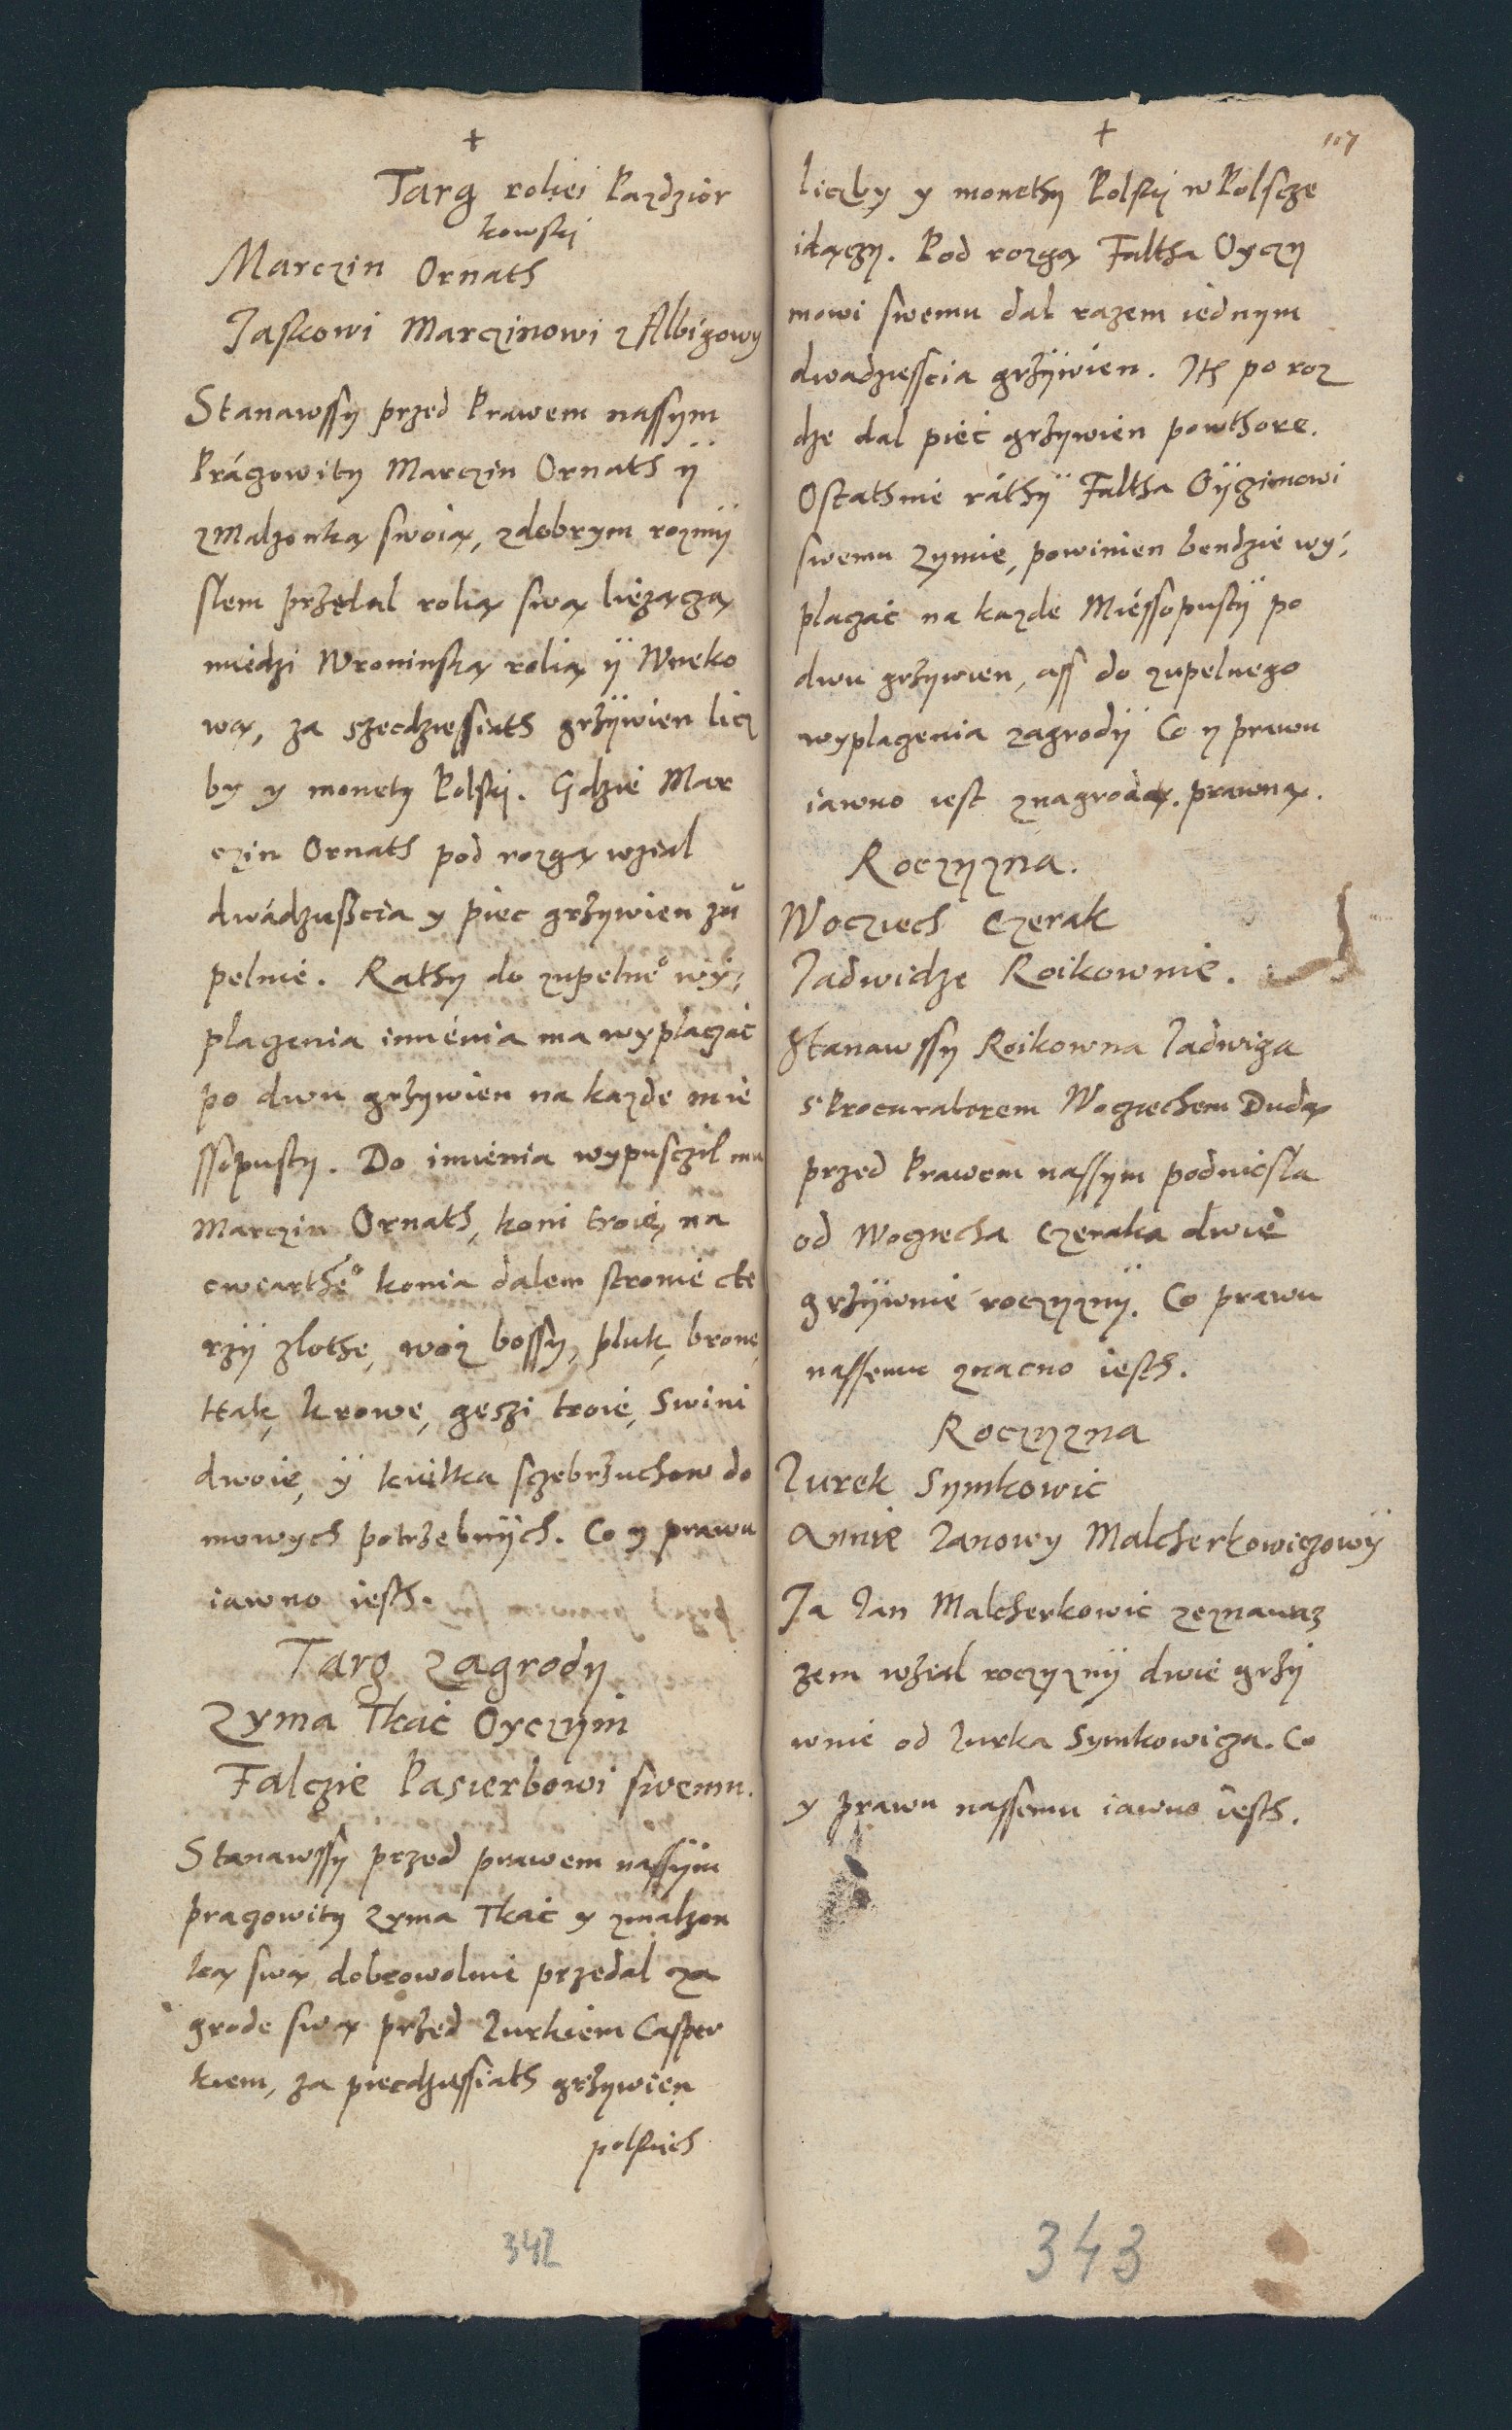 +
Targ roliei Pazdzior
kowski
Marczin Ornath
Jaskowi Marczinowi z Albigowy
Stanawssy przed Prawem nassym
Prágowity Marczin Ornath ÿ
z Malzonką swoią, z dobrym rozmÿ
slem przedal rolią swą lieżączą
miedzi Wroninską rolią ÿ Wneko
wą, za szecdziessiath grżÿwien licz
by y monety Polskÿ. Gdzie Mar
czin Ornath pod rozgą wzial
dwádziesscia y piec grżywien zu
pelnie. Rathy do zupelneo wÿ:
plagenia imienia ma wyplaczać
po dwu grżywien na kazde mie
ssopusty. Do imienia wypusczil mu
Marczin Ornath, koni troie, na
cwartheo konia dalem stronie cte
rzÿ zlothe, wóz bossy, pluk, brone,
ttak, krowe, geszi troie, swini
dwoie, ÿ kielka sczebrżuchow do
mowych potrzebnÿch. Co y prawu
iawno iesth.
Targ zagrody
Zyma Tkać Oyczym
Falczie Pasierbowi swemu.
Stanawssy przed prawem nassÿm
pragowity Zyma Tkać y z malzon
ką swą dobrowolnie przedal za
grode swą przed Jurkiem Casper
kiem, za piecdziessiath grżywien
polskich
342
+
107
liczby y monethy Polskÿ w Polscze
idączy. Pod rozgą Faltha Oyczy
mowi swemu dal razem iednym
dwadziesscia grżÿwien. Ith po roz
dze dal pieć grżywien powthore.
Ostathnie ráthÿ Faltha Oÿgimowi
swemu Zymie, powinien bendzie wy:
plagać na kazde Miéssopustÿ po
dwu grżywien, ass do zupelnego
wyplagenia zagrodÿ Co y prawu
iawno iest z nagrodą prawną.
Roczyzna.
Wocziech Czerak
Jadwidze Roikownie.
Stanawssy Roikowna Jadwiga
s Procuratorem Wogiechem Dudą
przed Prawem nassym podniesla
od Wogiecha Czeraka dwie
grżÿwnie roczyznÿ. Co prawu
nassemu znacno iesth.
Roczyzna
Jurek Symkowic
Annie Janowy Malcherkowiczowÿ
Ja Jan Malcherkowic zeznawaz
zem wżial roczyznÿ dwie grżÿ
wnie od Jurka Symkowicza. Co
y prawu nassemu iawno iesth.
343